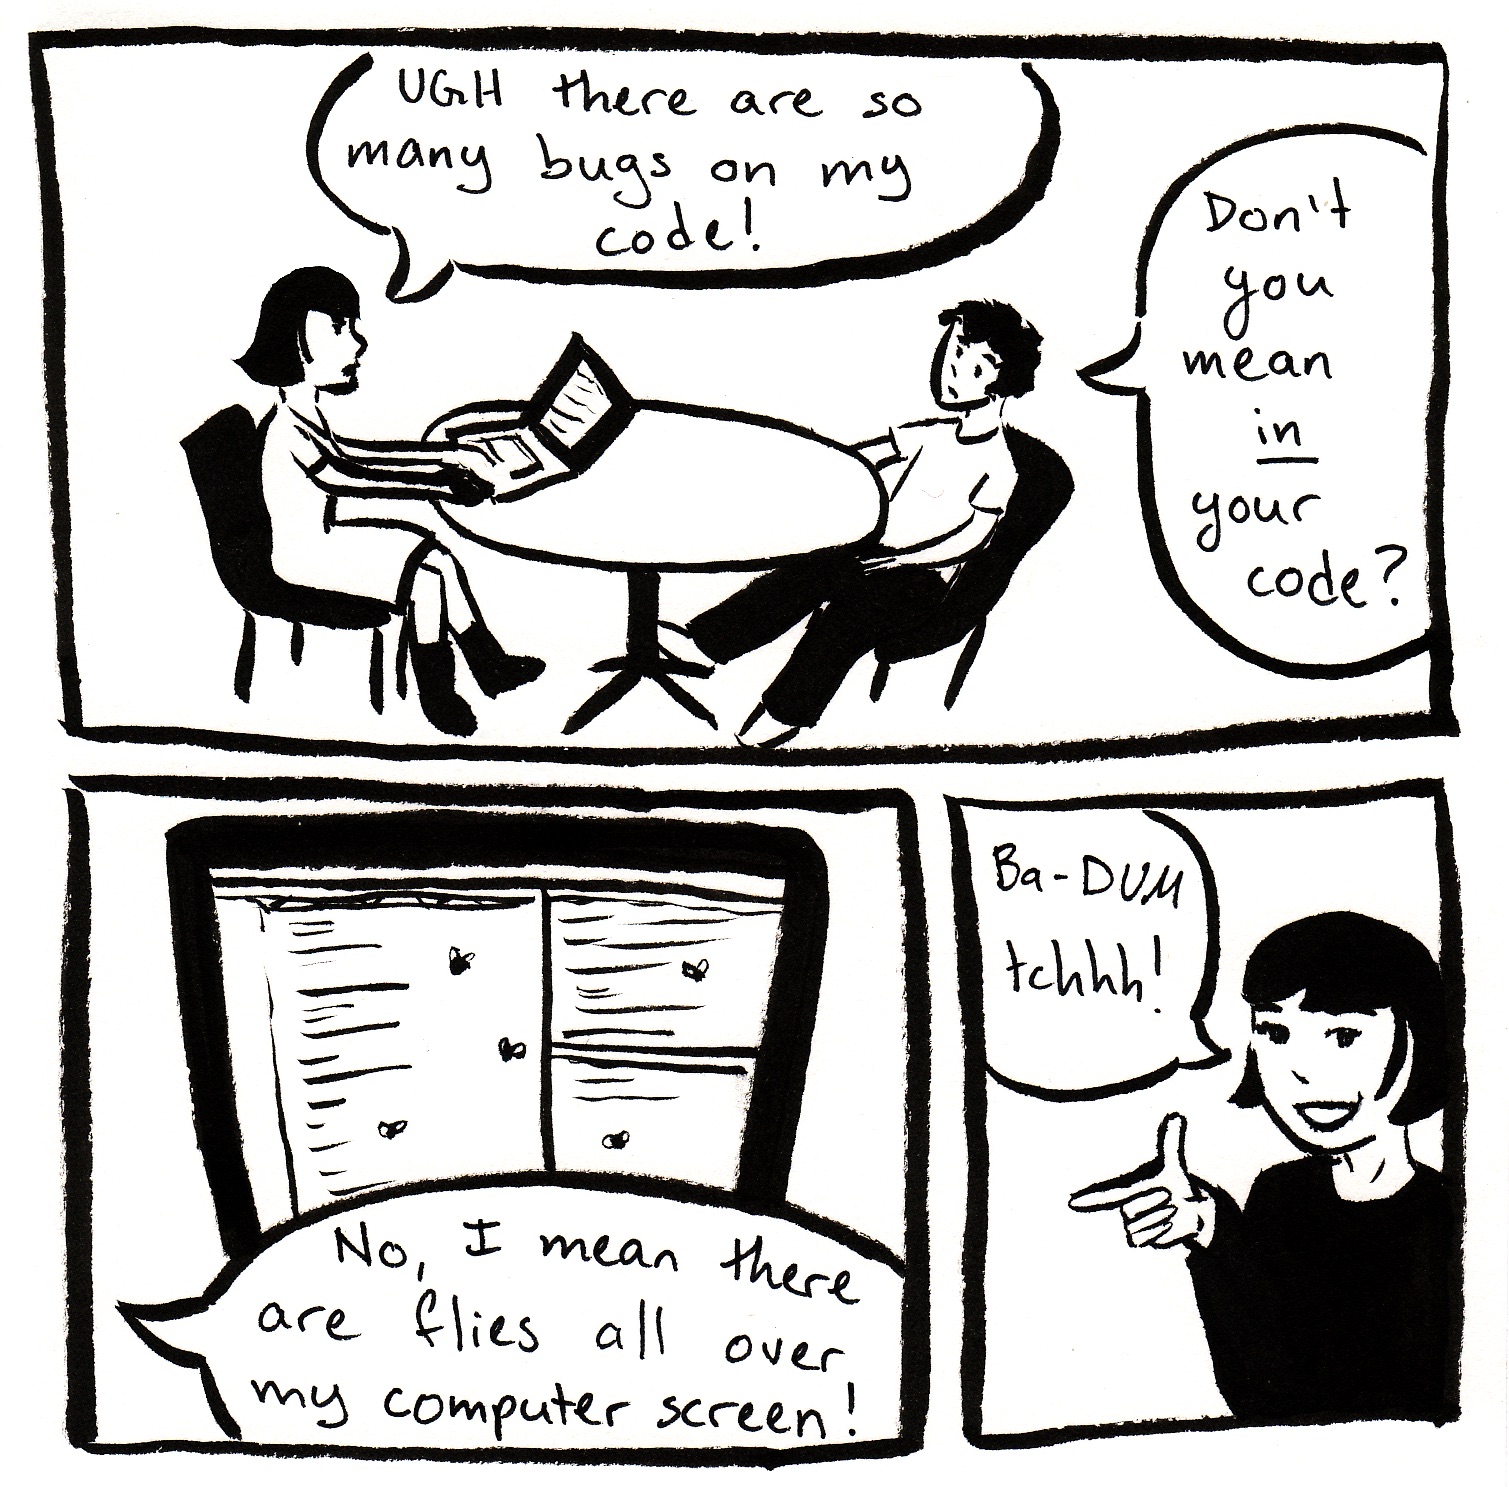 UGH there are so
many bugs on my
code!
Don't
you
mean
in
your
code?
No, I mean there
are flies all over
my computer screen!
Ba-DUM
tchhh!